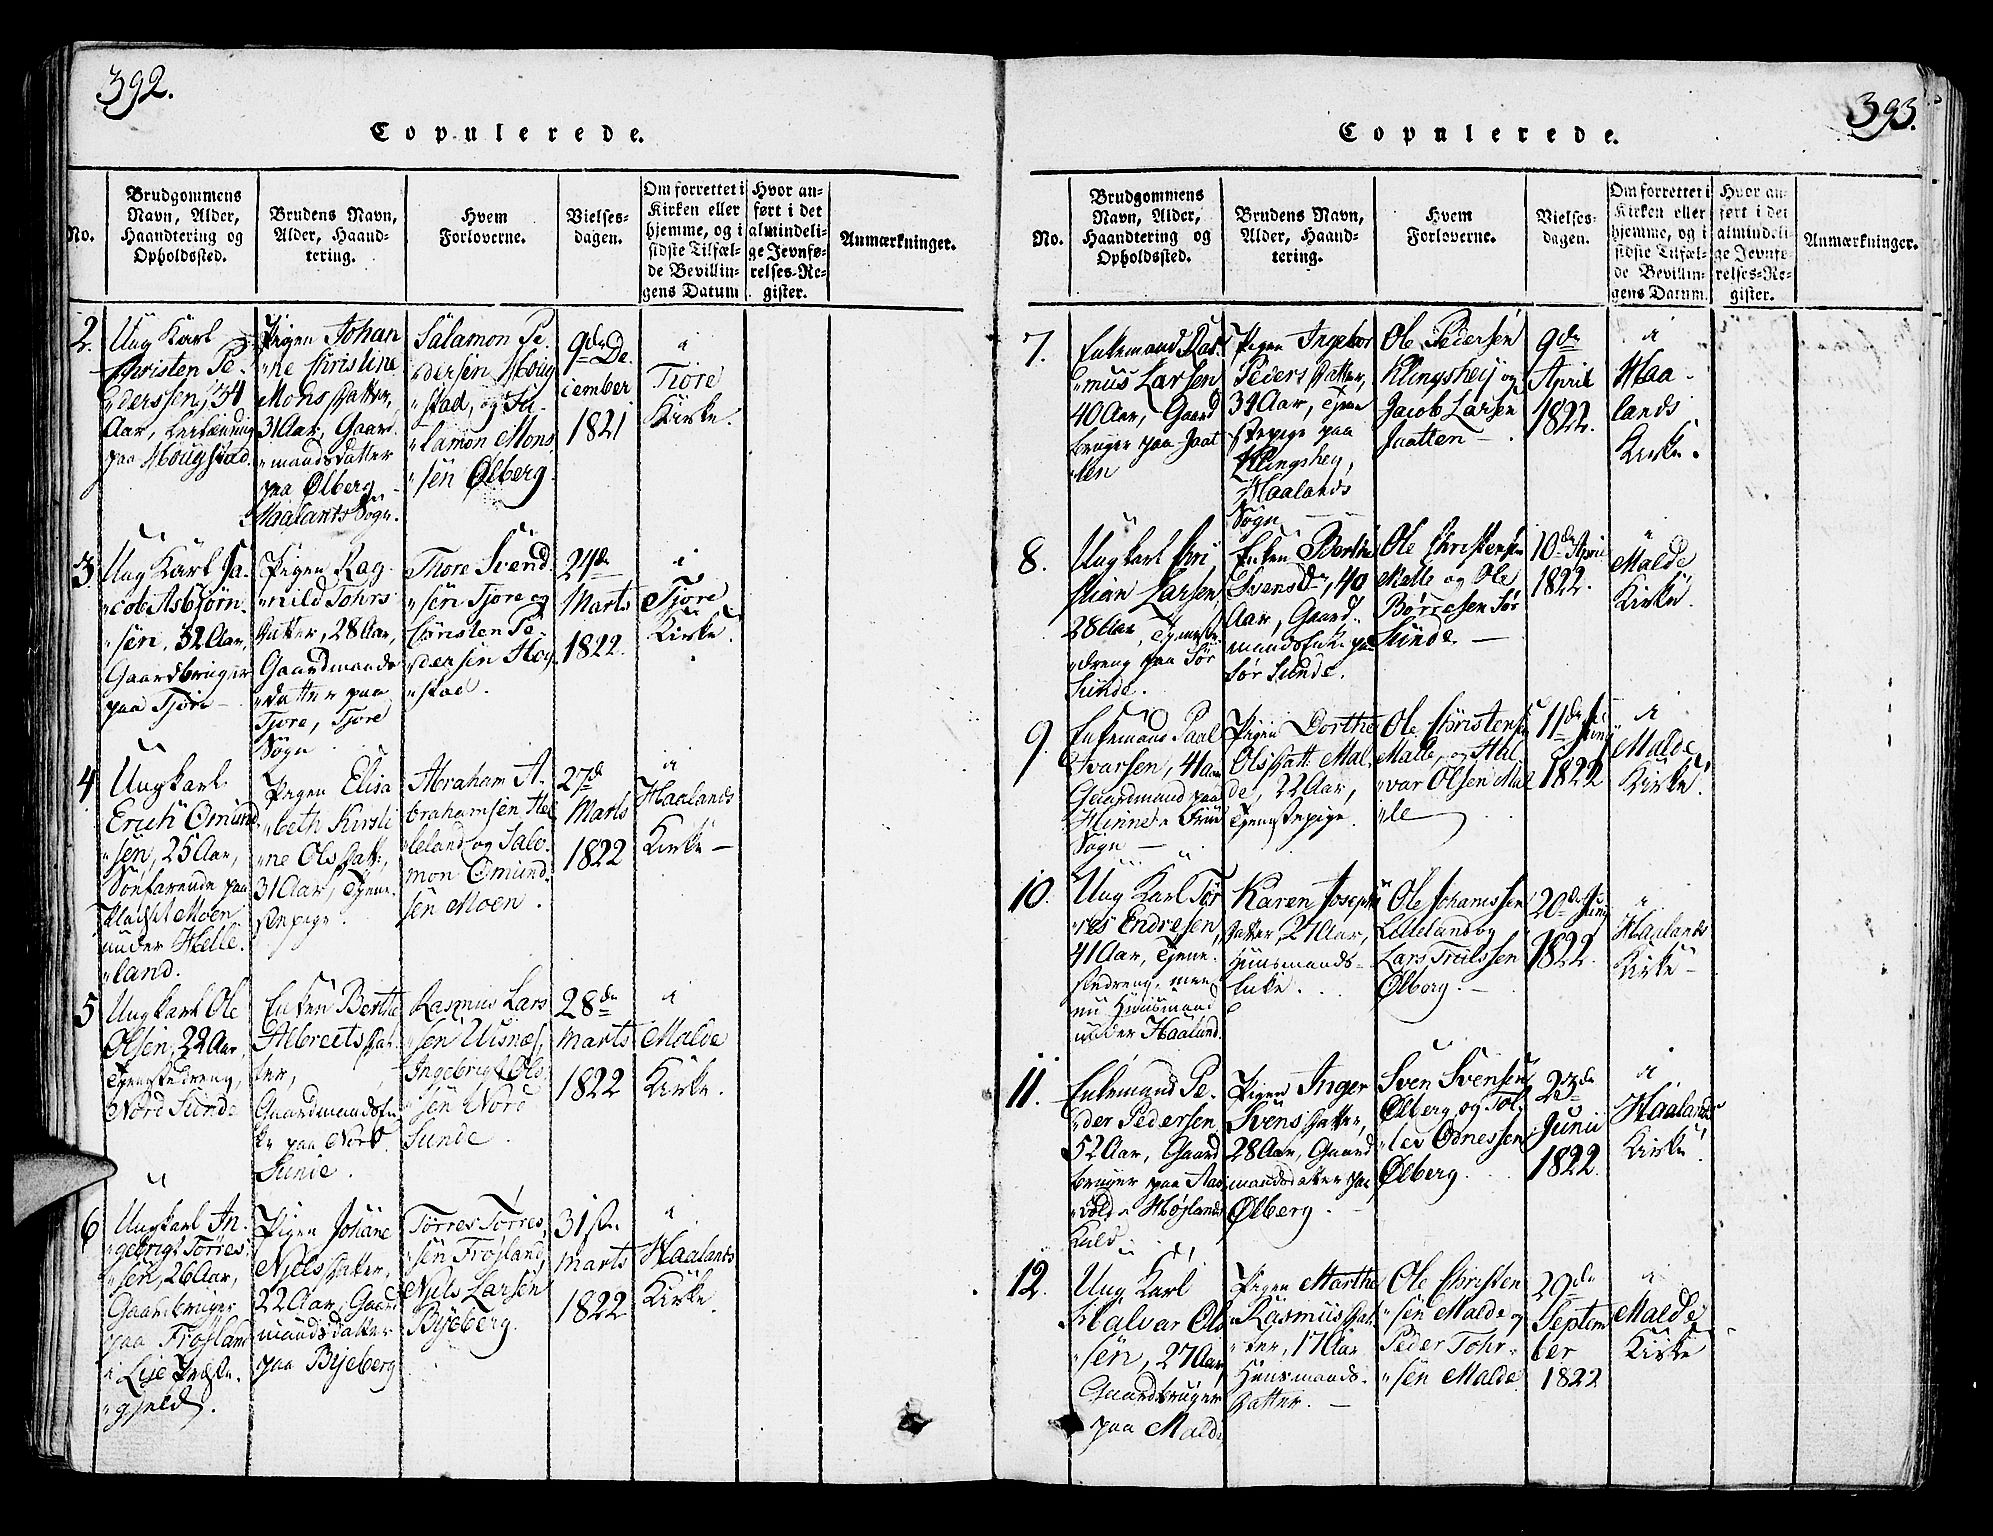 392.
Copulerede.
No.
Brudgommens
Navn, Alder,
Haandtering og
Opholdssted.
Brudens Navn,
Alder, Haand-
tering.
Hvem
Forloverne.
Vielses-
dagen.
Om forrettet i
Kirken eller
hjemme, og i
sidste Tilfæl-
de Bevillin-
gens Datum
Hvor an-
ført i det
almindeli-
ge Jevnfø-
relses-Re-
gister.
Anmærkninger.
2.
Ung Karl
Christen Pe-
"dersen, 34
Aar,
paa Hougstad.
Pigen Johan
"ne Christine
Mons Datter,
31 Aar, Gaard
"mandsdatter
paa Ølberg
Haalants Sogn.
Salamon Pe-
"dersen Houg
"stad, og Sa-
"lamon Mons
"sen Ølberg.
9de De
cember
1821
i
Tiore
Kirke.
3.
Ung Karl Ja-
"cob Asbjørn-
"sen, 32 Aar,
Gaardbruger
paa Tjore
Pigen Rag-
"nild Tohrs
Datter, 28 Aar,
Gaardmands
"datter paa
Tjore, Tjore
Sogn
Thore Svend
"sen Tjore og
Christen Pe-
"dersen Hog
"stad.
24de
Marts
1822.
i
Tjore
Kirke.
4
Ungkarl
Erich Omund
"sen, 25 Aar,
paa
Pladset Moen
under Helle-
"land.
Pigen Elisa
"beth Kirsti
"ne Ols Datt.,
31 Aar, Tjene-
stepige.
Abraham A-
brahamsen Hel
"leland og Salo-
mon Omund-
sen Moen.
27de
Marts
1822
i
Haalands
Kirke –
5
Ungkarl Ole
Olsen, 22 Aar,
Tjenestedreng,
Nord Sunde
Enken Berthe
Albrects Dat-
ter,
Gaardmandsen-
ke paa Nord
Sunde.
Rasmus Lars
"sen Uisnæs,
Ingebrigt Ols
"sen Nord
Sunde.
28de
Marts
1822
i
Malde
Kirke.
6
Ungkarl In-
"gebrigt Tørres
"sen, 26 Aar,
Gaardbruger
paa Frøjland
i Lye Præste-
"gjeld.
Pigen Johane
Njels Datter,
22 Aar, Gaard
mandsdatter
paa Byeberg
Tørres Tørres
"sen Frøjland,
Njels Larsen
Byeberg.
31te
Marts
1822
i
Haalands
Kirke.
393.
Copulerede.
No.
Brudgommens
Navn, Alder,
Haandtering og
Opholdssted.
Brudens Navn,
Alder, Haand-
tering.
Hvem
Forloverne.
Vielses-
dagen.
Om forrettet i
Kirken eller
hjemme, og i
sidste Tilfæl-
de Bevillin-
gens Datum.
Hvor an-
ført i det
almindeli-
ge Jevnfø-
relses-Re-
gister.
Anmærkninger.
7.
Enkemand Ras-
"mus Larsen
40 Aar, Gaard
bruger paa Jaat
"ten
Pigen Ingebor
Peders Datter,
34 Aar, Tjene
stepige paa
Klingshey,
Haalands
Sogn
Ole Pedersen
Klingsheij og
Jacob Larsen
Jaatten –
9de
April
1822.
i
Haa-
lands
Kirke.
8.
Ungkarl Chri
stian Larsen,
28 Aar, Tjeneste
"dreng paa Sør
Sunde.
Enken Berthe
Svens Dr, 40
Aar, Gaard-
mandsenke paa
Sør Sunde.
Ole Christensen
Malle og Ole
Børresen Sør
Sunde. –
10de April
1822.
i
Malde
Kirke.
9.
Enkemand Paal
Ivarsen, 41 Aar
Gaardmand paa
Hinne
Sogn –
Pigen Dorthe
Ols Datt. Mal-
de, 22 Aar,
Tjenestepige.
Ole Christensen
Malle, og Hal
"var Olsen Mal
"le
11de Juni
1822
i
Malde
Kirke.
10.
Ung Karl Tør
"res Endresen,
41 Aar, Tjene-
stedreng, men
nu Huusmand
under Haaland.
Karen Joseph
Datter, 27 Aar,
Huusmands-
Enke.
Ole Johanssen
Lilleland og
Lars Trulssen
Ølberg. –
20de Juni
1822.
i
Haalands
Kirke –
11.
Enkemand Pe-
"der Pedersen
52 Aar, Gaard
bruger paa Aas
"vold Højlands
Kald
Pigen Inger
Svens Datter,
28 Aar, Gaard
mandsdatter paa
Ølberg.
Sven Svensen
Ølberg og Tol-
"lev Odnessen
Ølberg.
23de
Junii
1822.
i
Haalands
Kirke.
12.
Ung Karl
Halvar Ols
"sen, 27 Aar,
Gaardbruger
paa Malde
Pigen Marthe
Rasmus Dat-
"ter, 17 Aar
Huusmands-
Datter. –
Ole Christen
"sen Malde og
Peder Tohr-
"sen Malde.
29de
Septem
ber
1822
i
Malde
Kirke